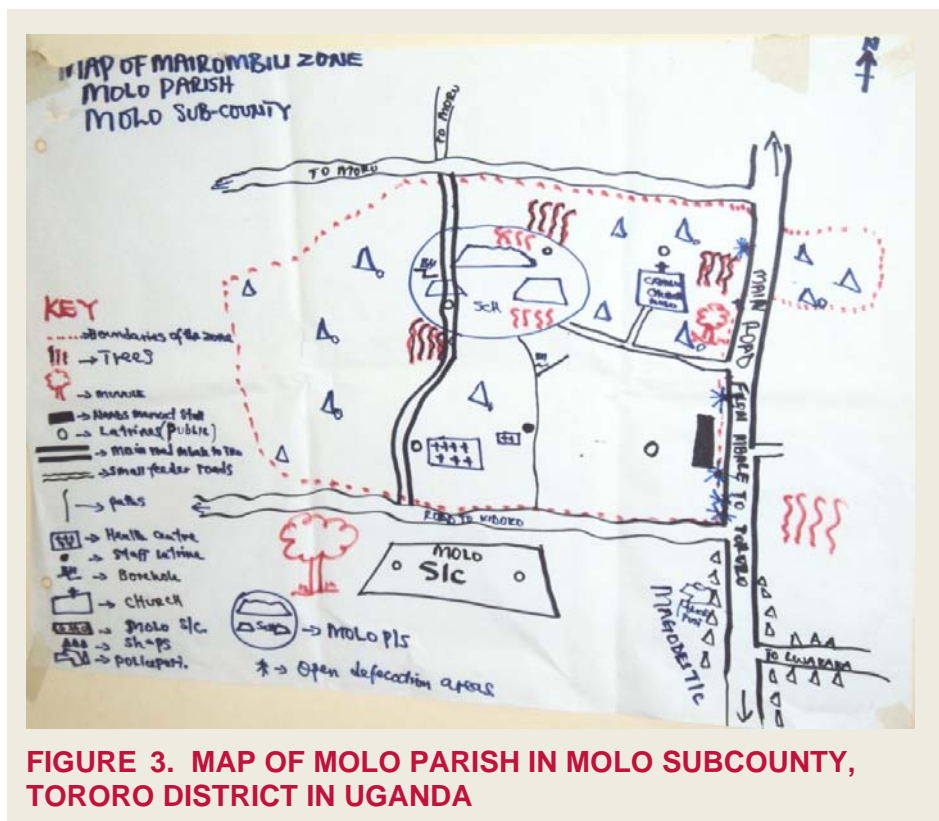 MAP OF MAIROMBILI ZONE
MOLO PARISH
MOLO SUB-COUNTY
N
TO MORU
TO MORU
BH
SCH
CATHOLIC CHURCH MOLO
MAIN ROAD FROM MBALE TO TORORO
BH
ROAD TO KIDOKO
MOLO
S/c
MAGODESTIC
TO LWAKAKA
KEY
→ Boundaries of the zone
→ Trees
→
→ Latrines (Public)
→ Main road Mbale to
→ Small feeder roads
→ paths
→ Health centre
→ Staff latrine
→ Borehole
→ CHURCH
→ MOLO S/c.
→ Shops
→
Sch
→ MOLO P/S
* → Open defecation areas
FIGURE 3. MAP OF MOLO PARISH IN MOLO SUBCOUNTY,
TORORO DISTRICT IN UGANDA